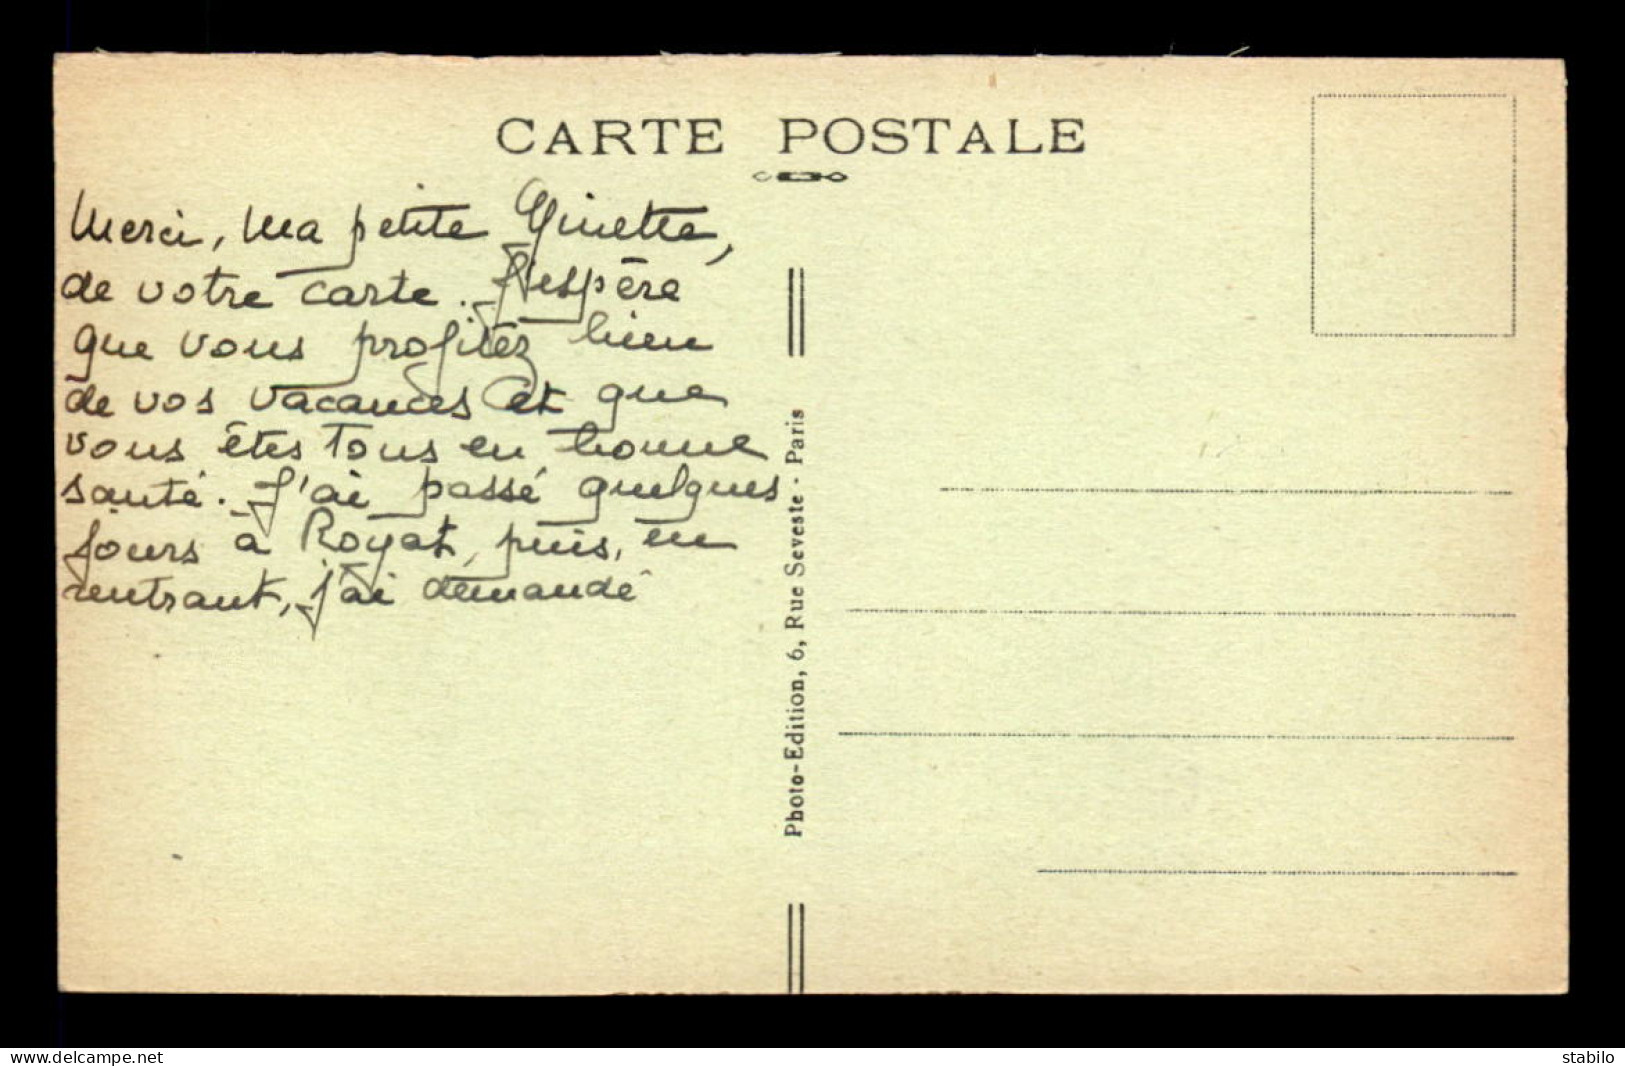 CARTE POSTALE
Merci, ma petite Ginette,
de votre carte. J'espère
que vous profitez bien
de vos vacances et que
vous êtes tous en bonne
santé. J'ai passé quelques
jours à Royat, puis, en
rentrant, j'ai demandé
Photo-Edition, 6, Rue Seveste - Paris
www.delcampe.net
stabilo